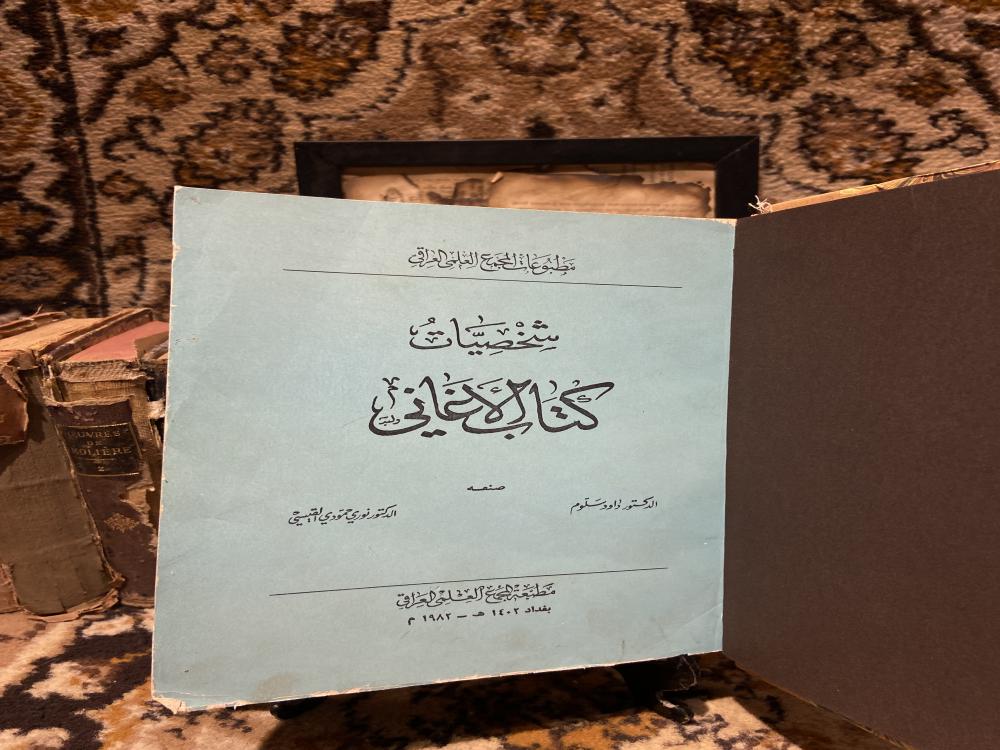 مطبوعات المجمع العلمي العراقي
شخصيّات
كتاب الأغاني
صنعه
الدكتور داود سلوم
الدكتور نوري حمودي القيسي
مطبعة المجمع العلمي العراقي
بغداد ١٤٠٢ هـ - ١٩٨٢ م
ŒUVRES
DE
MOLIÈRE
2